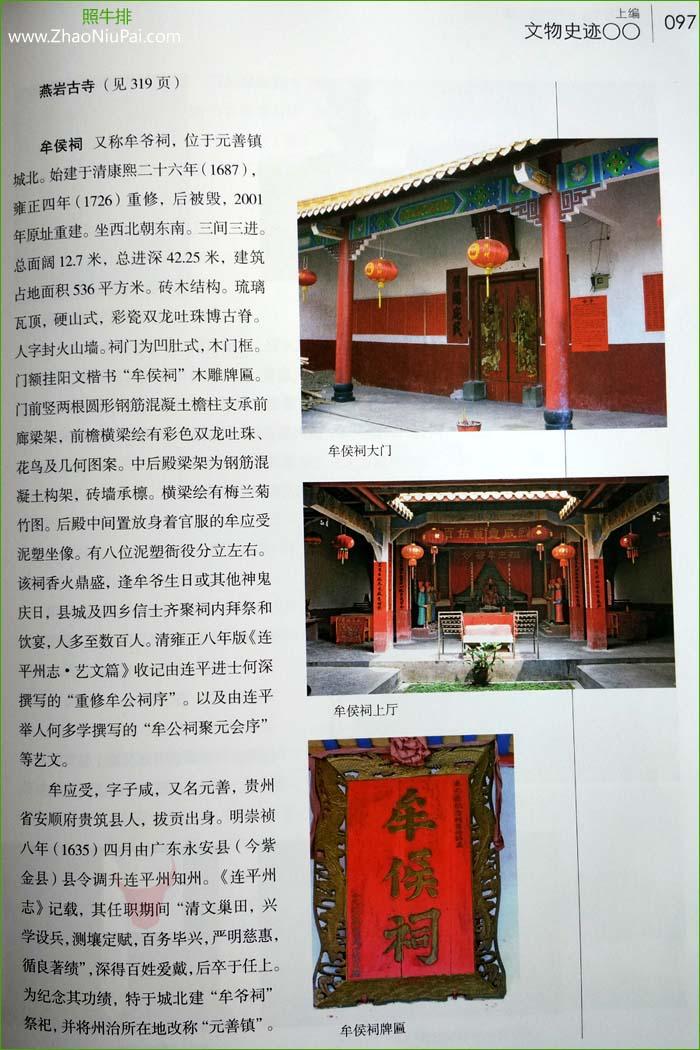 照牛排
www.ZhaoNiuPai.com
上编
文物史迹〇〇
097
燕岩古寺（见319页）
牟侯祠 又称牟爷祠，位于元善镇
城北。始建于清康熙二十六年（1687），
雍正四年（1726）重修，后被毁，2001
年原址重建。坐西北朝东南。三间三进。
总面阔12.7米，总进深42.25米，建筑
占地面积536平方米。砖木结构。琉璃
瓦顶，硬山式，彩瓷双龙吐珠博古脊。
人字封火山墙。祠门为凹肚式，木门框。
门额挂阳文楷书“牟侯祠”木雕牌匾。
门前竖两根圆形钢筋混凝土檐柱支承前
廊梁架，前檐横梁绘有彩色双龙吐珠、
花鸟及几何图案。中后殿梁架为钢筋混
凝土构架，砖墙承檩。横梁绘有梅兰菊
竹图。后殿中间置放身着官服的牟应受
泥塑坐像。有八位泥塑衙役分立左右。
该祠香火鼎盛，逢牟爷生日或其他神鬼
庆日，县城及四乡信士齐聚祠内拜祭和
饮宴，人多至数百人。清雍正八年版《连
平州志·艺文篇》收记由连平进士何深
撰写的“重修牟公祠序”。以及由连平
举人何多学撰写的“牟公祠聚元会序”
等艺文。
牟应受，字子咸，又名元善，贵州
省安顺府贵筑县人，拔贡出身。明崇祯
八年（1635）四月由广东永安县（今紫
金县）县令调升连平州知州。《连平州
志》记载，其任职期间“清文巢田，兴
学设兵，测壤定赋，百务毕兴，严明慈惠，
循良著绩”，深得百姓爱戴，后卒于任上。
为纪念其功绩，特于城北建“牟爷祠”
祭祀，并将州治所在地改称“元善镇”。
牟侯祠大门
牟侯祠上厅
牟侯祠
牟侯祠牌匾